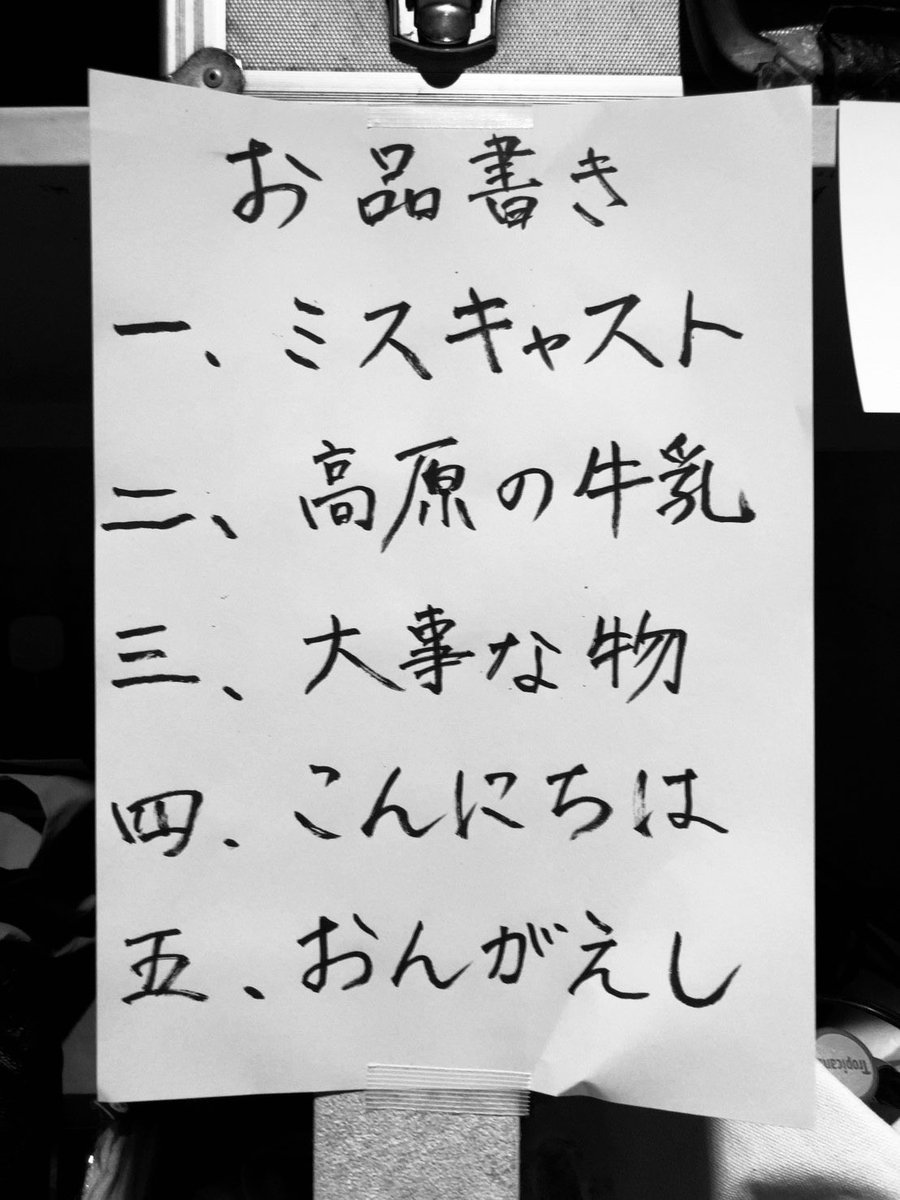 お品書き
一、ミスキャスト
二、高原の牛乳
三、大事な物
四、こんにちは
五、おんがえし
Tropicana